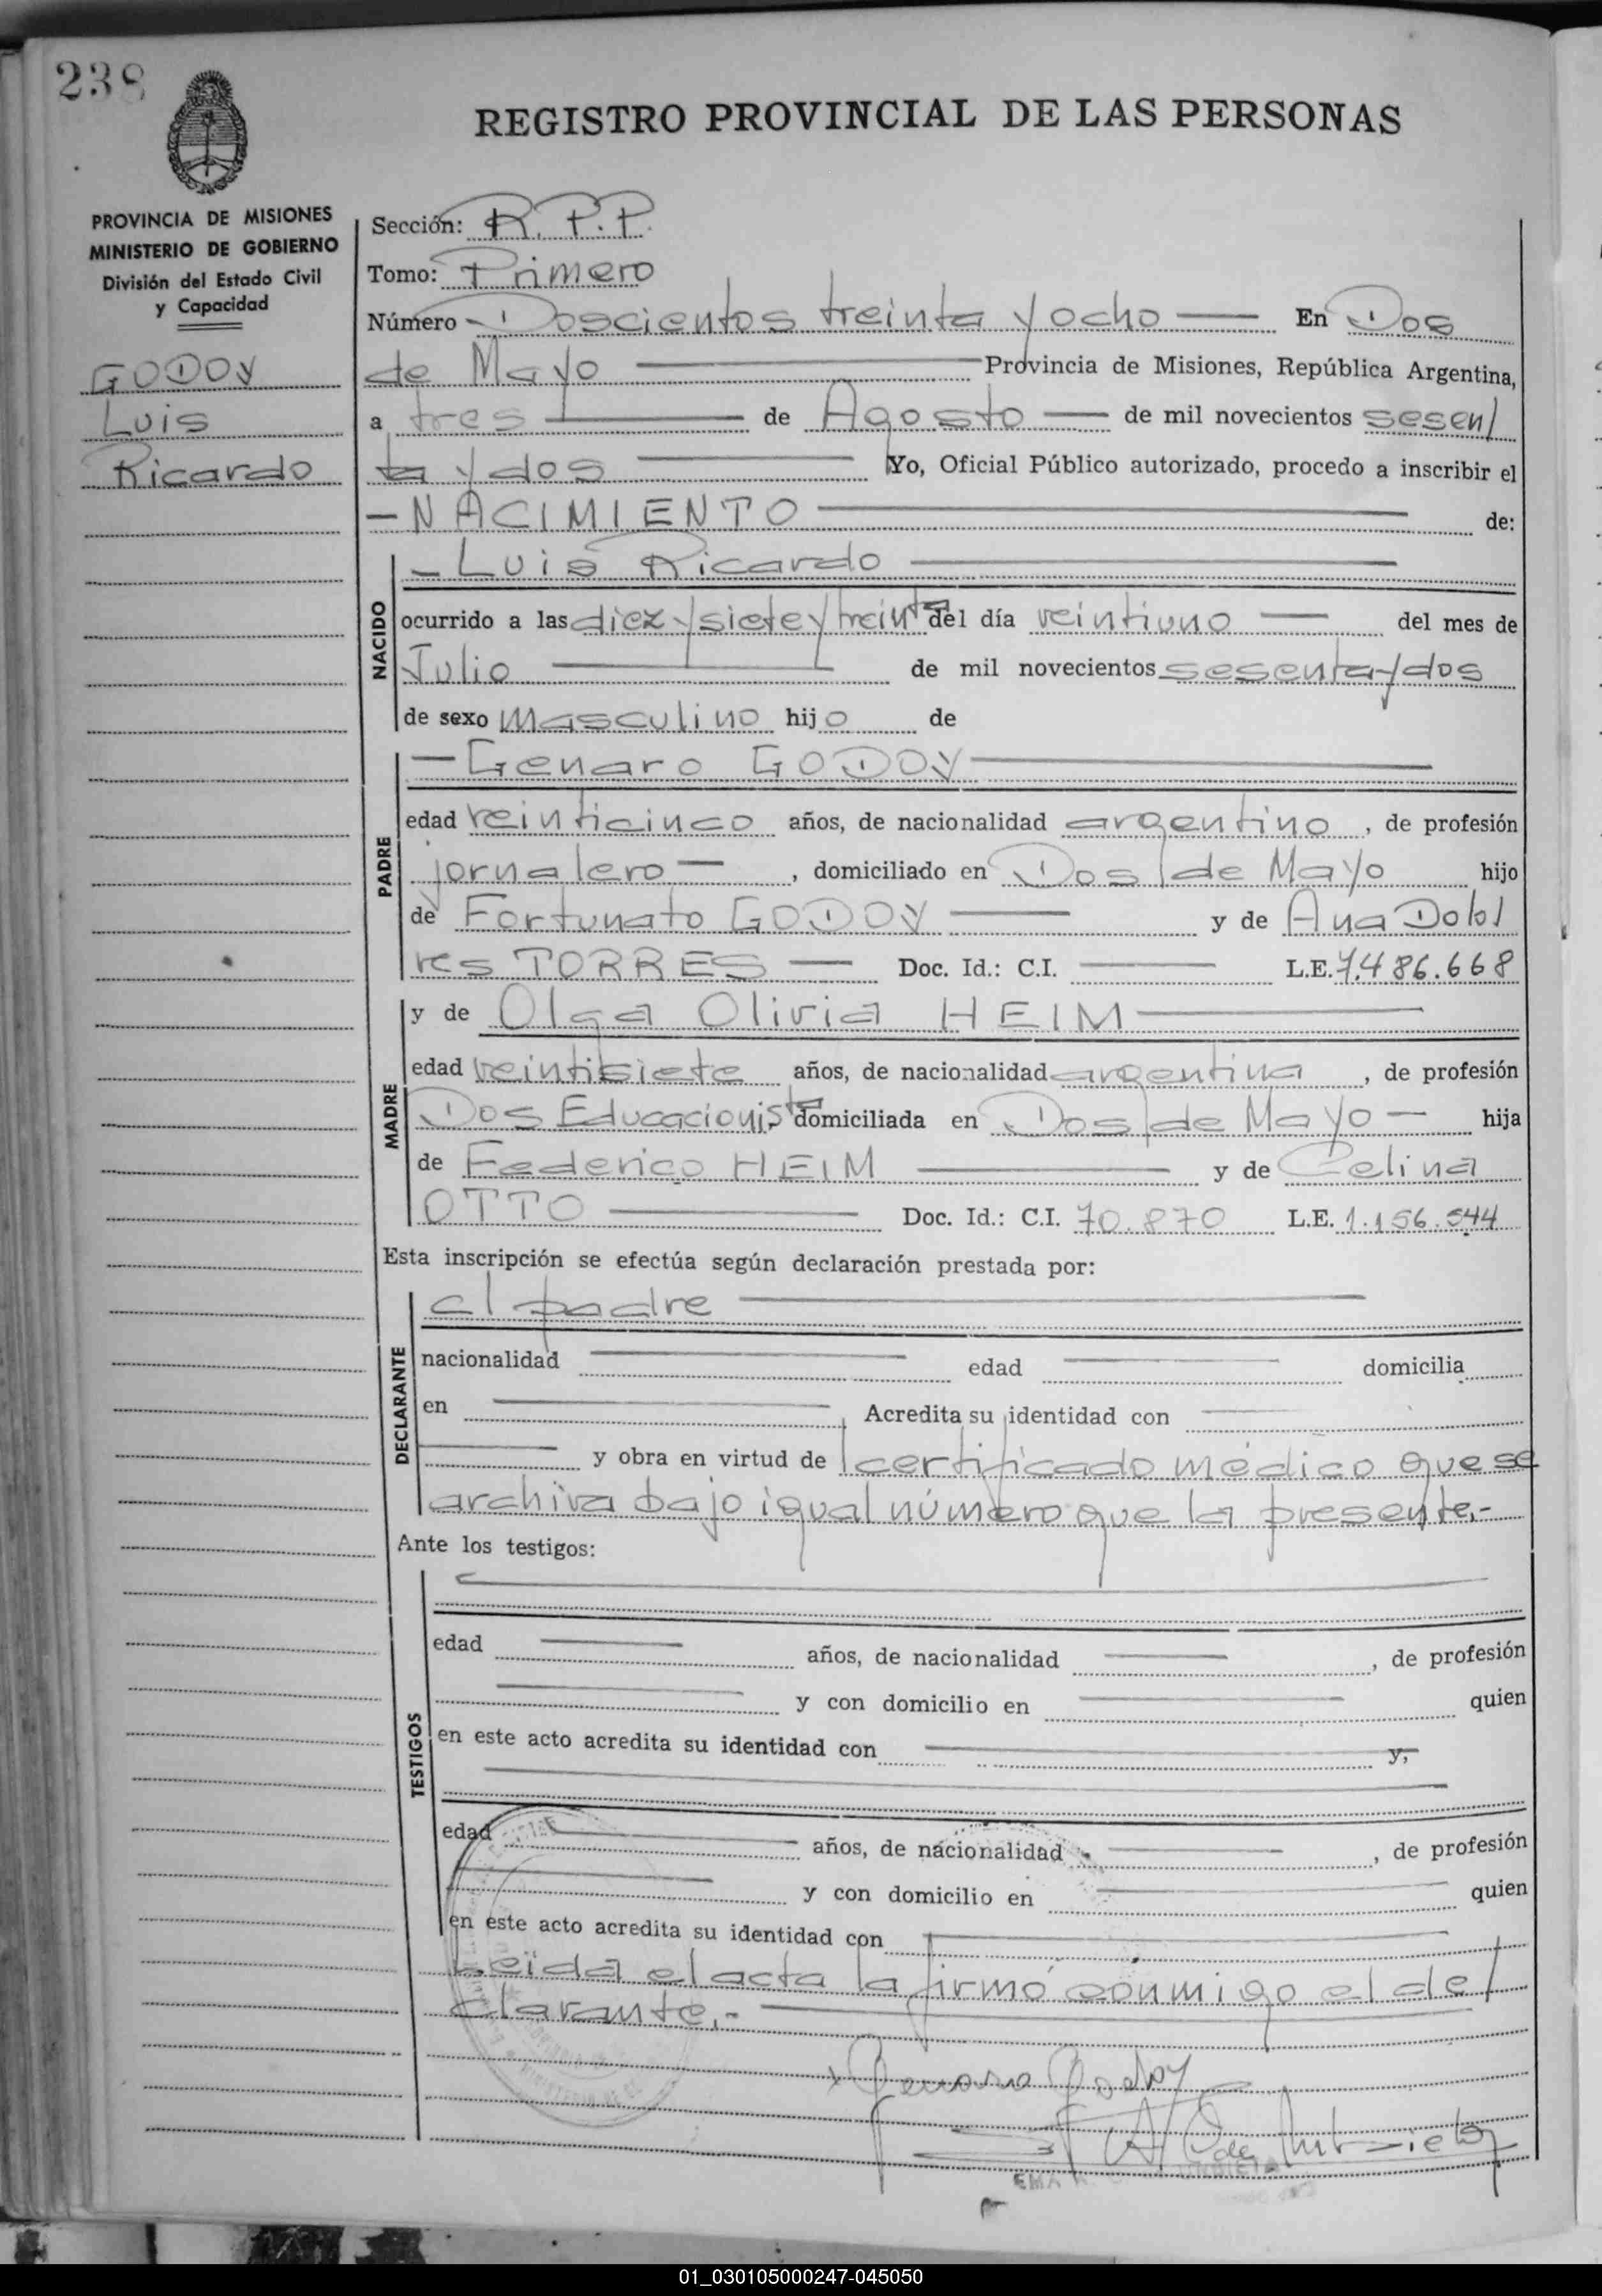 238
REGISTRO PROVINCIAL DE LAS PERSONAS
PROVINCIA DE MISIONES
MINISTERIO DE GOBIERNO
División del Estado Civil
y Capacidad
GODOY
Luis
Ricardo
Sección: R.P.P.
Tomo: Primero
Número - Doscientos treinta y ocho — En Dos
de Mayo — Provincia de Misiones, República Argentina,
a tres — de Agosto — de mil novecientos sesen/
ta y dos — Yo, Oficial Público autorizado, procedo a inscribir el
- NACIMIENTO — de:
NACIDO
- Luis Ricardo —
ocurrido a las diez y siete y treinta del día veintiuno — del mes de
Julio — de mil novecientos sesenta y dos
de sexo masculino hijo de
PADRE
- Genaro GODOY —
edad veinticinco años, de nacionalidad argentino, de profesión
jornalero —, domiciliado en Dos de Mayo hijo
de Fortunato GODOY — y de Ana Dolo/
res TORRES — Doc. Id.: C.I. — L.E. 7.486.668
MADRE
y de Olga Olivia HEIM —
edad veintisiete años, de nacionalidad argentina, de profesión
Dos Educacionista domiciliada en Dos de Mayo — hija
de Federico HEIM — y de Celina
OTTO — Doc. Id.: C.I. 70.870 L.E. 1.156.544
Esta inscripción se efectúa según declaración prestada por:
DECLARANTE
el padre —
nacionalidad — edad — domicilia
en — Acredita su identidad con —
— y obra en virtud de certificado médico que se
archiva bajo igual número que la presente.-
Ante los testigos:
TESTIGOS
edad — años, de nacionalidad —, de profesión
— y con domicilio en — quien
en este acto acredita su identidad con — y,
edad — años, de nacionalidad —, de profesión
— y con domicilio en — quien
en este acto acredita su identidad con —
Leída el acta la firmó conmigo el de/
clarante.- —
Genaro Godoy
01_030105000247-045050